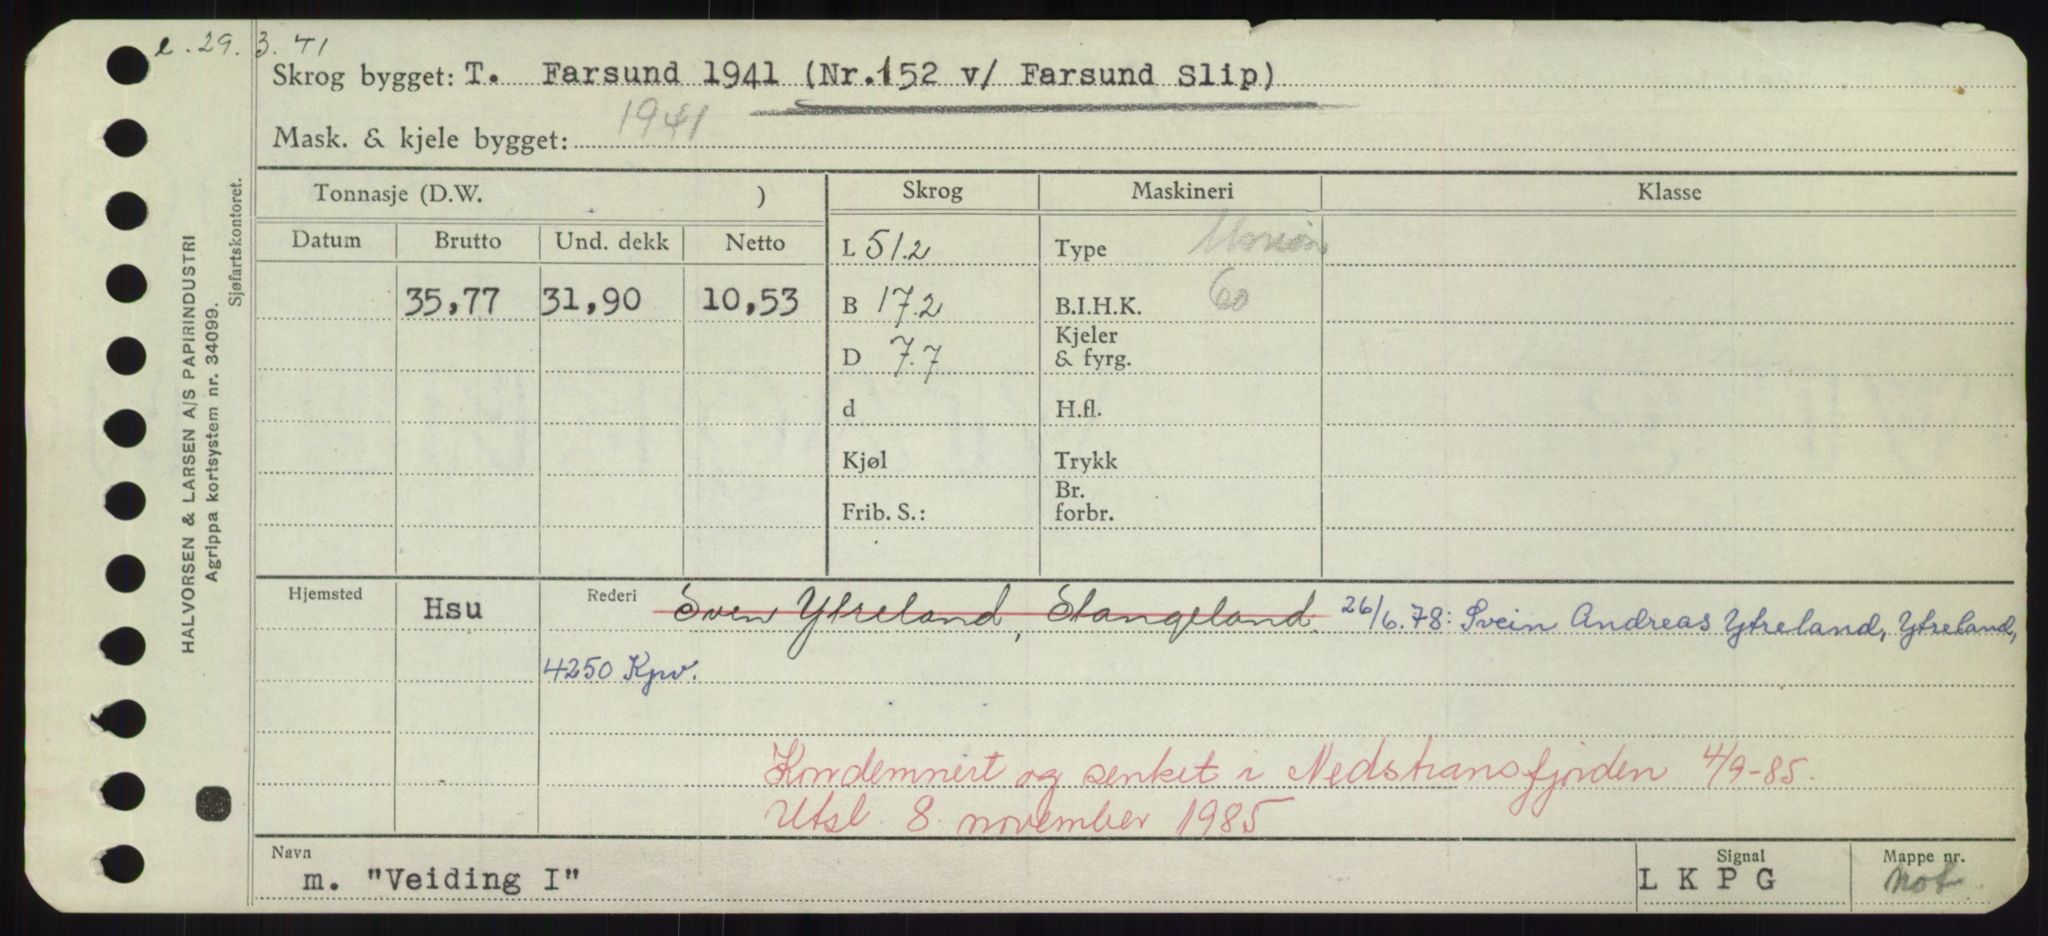 e. 29. 3. 41
Skrog bygget: T. Farsund 1941 (Nr. 152 v/ Farsund Slip)
Mask. & kjele bygget: 1941
Tonnasje (D.W. )
Skrog
Maskineri
Klasse
Datum Brutto Und. dekk Netto
L 51.2
Type
35,77 31,90 10,53
B 17.2
B.I.H.K. 60
D 7.7
Kjeler
& fyrg.
d
H.fl.
Kjøl
Trykk
Frib. S.:
Br.
forbr.
Hjemsted Hsu
Rederi Sven Ytreland, Stangeland. 26/6.78: Svein Andreas Ytreland, Ytreland,
4250 Kpv.
Kondemnert og senket i Nedstransfjorden 4/9-85.
Utsl. 8. november 1985
Navn
m. "Veiding I"
Signal
L K P G
Mappe nr.
not
HALVORSEN & LARSEN A/S PAPIRINDUSTRI
Agrippa kortsystem nr. 34099.
Sjøfartskontoret.